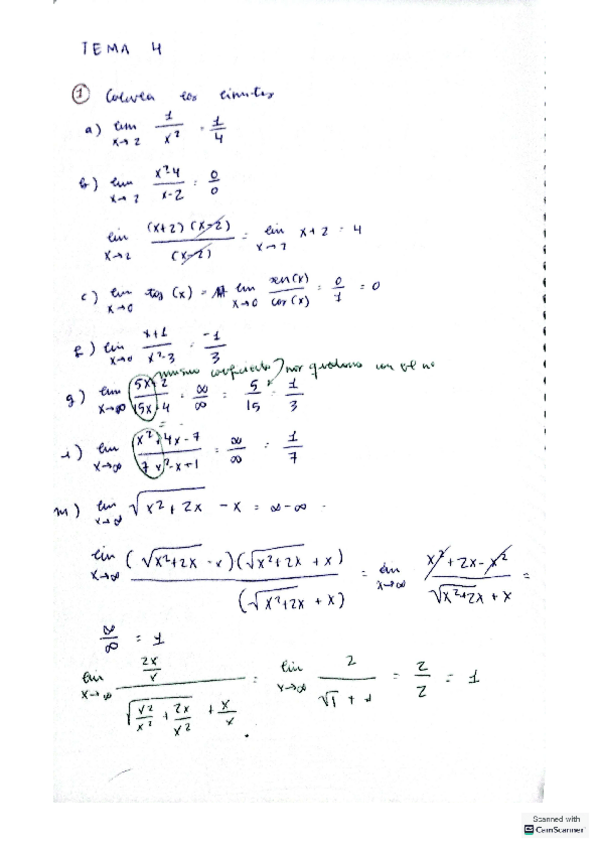 TEMA 4
① Calcula los límites
a) lim x→2 1/x² = 1/4
b) lim x→2 x²-4/x-2 = 0/0
lim x→2 (x+2)(x-2)/(x-2) = lim x→2 x+2 = 4
c) lim x→0 tg(x) = lim x→0 sen(x)/cos(x) = 0/1 = 0
f) lim x→0 x+1/x²-3 = -1/3
mismo coeficiente, nos quedamos con el nº
g) lim x→∞ 5x+2/15x-4 = ∞/∞ = 5/15 = 1/3
i) lim x→∞ x²+4x-7/7x²-x+1 = ∞/∞ = 1/7
m) lim x→∞ √x²+2x - x = ∞-∞
lim x→∞ (√x²+2x - x)(√x²+2x + x)/(√x²+2x + x) = lim x→∞ x²+2x-x²/√x²+2x + x =
∞/∞ = 1
lim x→∞ 2x/x/√x²/x² + 2x/x² + x/x = lim x→∞ 2/√1 + 1 = 2/2 = 1
Scanned with
CamScanner